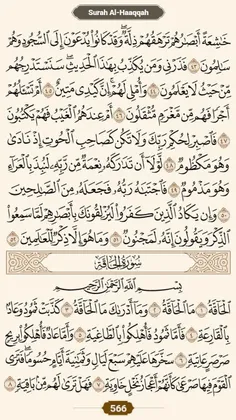 Surah Al-Haaqqah
خَٰشِعَةً أَبْصَٰرُهُمْ تَرْهَقُهُمْ ذِلَّةٌ ۖ وَقَدْ كَانُوا۟ يُدْعَوْنَ إِلَى ٱلسُّجُودِ وَهُمْ
سَٰلِمُونَ ٤٣ فَذَرْنِى وَمَن يُكَذِّبُ بِهَٰذَا ٱلْحَدِيثِ ۖ سَنَسْتَدْرِجُهُم
مِّنْ حَيْثُ لَا يَعْلَمُونَ ٤٤ وَأُمْلِى لَهُمْ ۚ إِنَّ كَيْدِى مَتِينٌ ٤٥ أَمْ تَسْـَٔلُهُمْ
أَجْرًا فَهُم مِّن مَّغْرَمٍ مُّثْقَلُونَ ٤٦ أَمْ عِندَهُمُ ٱلْغَيْبُ فَهُمْ يَكْتُبُونَ
٤٧ فَٱصْبِرْ لِحُكْمِ رَبِّكَ وَلَا تَكُن كَصَاحِبِ ٱلْحُوتِ إِذْ نَادَىٰ
وَهُوَ مَكْظُومٌ ٤٨ لَّوْلَآ أَن تَدَٰرَكَهُۥ نِعْمَةٌ مِّن رَّبِّهِۦ لَنُبِذَ بِٱلْعَرَآءِ
وَهُوَ مَذْمُومٌ ٤٩ فَٱجْتَبَٰهُ رَبُّهُۥ فَجَعَلَهُۥ مِنَ ٱلصَّٰلِحِينَ
٥٠ وَإِن يَكَادُ ٱلَّذِينَ كَفَرُوا۟ لَيُزْلِقُونَكَ بِأَبْصَٰرِهِمْ لَمَّا سَمِعُوا۟
ٱلذِّكْرَ وَيَقُولُونَ إِنَّهُۥ لَمَجْنُونٌ ٥١ وَمَا هُوَ إِلَّا ذِكْرٌ لِّلْعَٰلَمِينَ ٥٢
سُورَةُ الحَاقَّةِ
بِسْمِ ٱللَّهِ ٱلرَّحْمَٰنِ ٱلرَّحِيمِ
ٱلْحَآقَّةُ ١ مَا ٱلْحَآقَّةُ ٢ وَمَآ أَدْرَىٰكَ مَا ٱلْحَآقَّةُ ٣ كَذَّبَتْ ثَمُودُ وَعَادٌۢ
بِٱلْقَارِعَةِ ٤ فَأَمَّا ثَمُودُ فَأُهْلِكُوا۟ بِٱلطَّاغِيَةِ ٥ وَأَمَّا عَادٌ فَأُهْلِكُوا۟ بِرِيحٍ
صَرْصَرٍ عَاتِيَةٍ ٦ سَخَّرَهَا عَلَيْهِمْ سَبْعَ لَيَالٍ وَثَمَٰنِيَةَ أَيَّامٍ حُسُومًا فَتَرَى
ٱلْقَوْمَ فِيهَا صَرْعَىٰ كَأَنَّهُمْ أَعْجَازُ نَخْلٍ خَاوِيَةٍ ٧ فَهَلْ تَرَىٰ لَهُم مِّنۢ بَاقِيَةٍ ٨
566